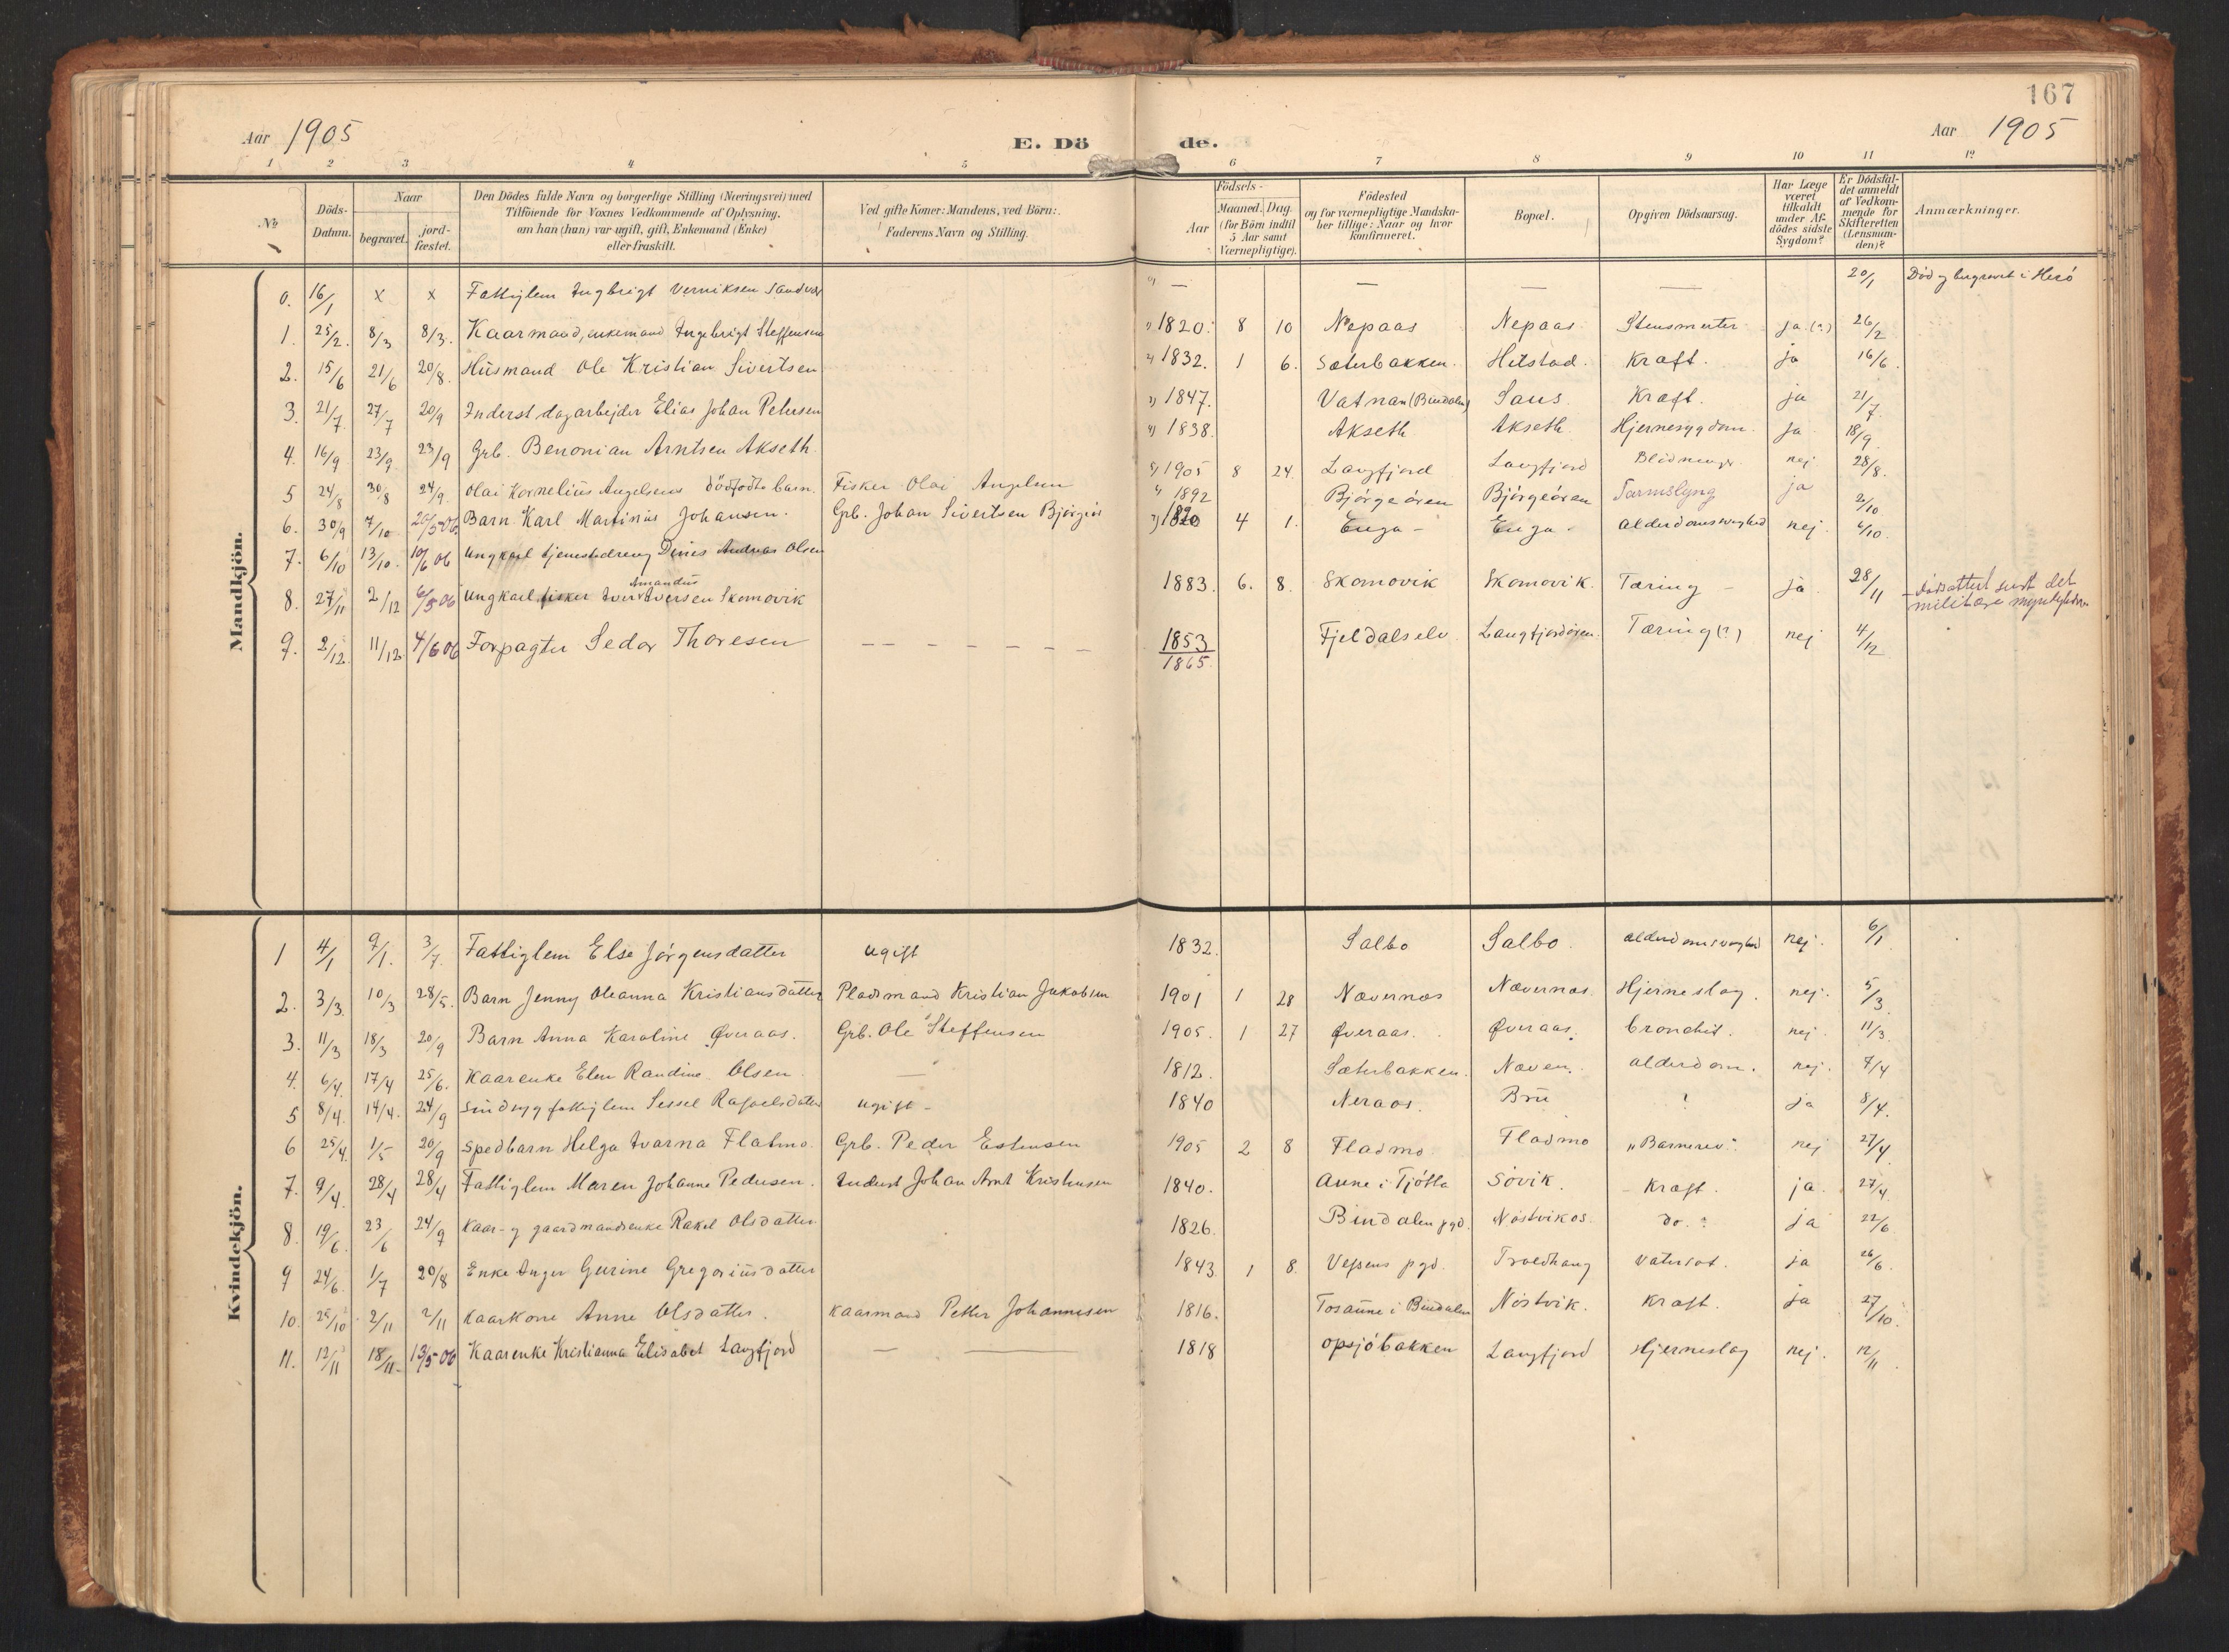 167
Aar 1905
E. Döde.
Aar 1905
1 2 3 4 5 6 7 8 9 10 11 12
No.
Döds-Datum.
Naar
begravet.
jord-fæstet.
Den Dödes fulde Navn og borgerlige Stilling (Næringsvei) med
Tilföiende for Voxnes Vedkommende af Oplysning,
om han (hun) var ugift, gift, Enkemand (Enke)
eller fraskilt.
Ved gifte Koner: Mandens, ved Börn:
Faderens Navn og Stilling.
Födsels-
Aar
Maaned. Dag.
(for Börn indtil
5 Aar samt
Værnepligtige).
Födested
og for værnepligtige Mandska-
ber tillige: Naar og hvor
konfirmeret.
Bopæl.
Opgiven Dödsaarsag.
Har Læge
været
tilkaldt
under Af-
dödes sidste
Sygdom?
Er Dödsfal-
det anmeldt
af Vedkom-
mende for
Skifteretten
(Lensman-
den)?
Anmærkninger.
Mandkjön.
0. 16/1 x x Fattiglem Ingbrigt Verniksen — — — — 20/1 Död og begravet i Herö
1. 25/2. 8/3 8/3. Kaarmand, enkemand Ingebrigt Steffensen 1) 1820. 8 10 Nepaas Nepaas Stensmerter ja (?) 26/2
2. 15/6 21/6 20/8. Husmand Ole Kristian Sivertsen 2) 1832. 1 6. Sæterbakken. Hilstad. Kræft. ja 16/6.
3. 21/7. 27/7 20/9 Inderst dagarbejder Elias Johan Petersen 3) 1847. Vatnan (Bindalen) Saus Kræft. ja 21/7.
4. 16/9 23/9. 23/9 Grb. Benonian Arntsen Akseth. 4) 1838. Akseth Akseth. Hjernesygdom. ja 18/9.
5 24/8 30/8 24/9. Olai Kornelius Angelsens dödfödte barn. Fisker Olai Angelsen 5) 1905 8 24. Langfjord Langfjord nej 28/8.
6. 30/9 7/10 20/5 06. Barn Karl Martinus Johansen. Grb. Johan Sivertsen 1892 Björgeören Björgeören Tarmslyng ja 2/10.
7. 6/10 13/10. 10/6 06 Ungkarl tjenestedreng Dines Andreas Olsen 7) 1820 4 1. Enga - Enga - alderdomssvaghed nej. 6/10.
8. 27/11 2/12 6/5 06 Ungkarl fisker Iver Amandus Iversen Skomovik 1883. 6. 8. Skomovik Skomovik. Tæring - ja 28/11 - det militære
9. 2/12. 11/12 4/6 06 Forpagter Sedor Thoresen — — — — — — 1853 1865. Fjeldalselv. Langfjordören. Tæring (?) nej 4/12
Kvindekjön.
1 4/1 9/1. 3/7. Fattiglem Else Jörgensdatter ugift 1832. Salbo Salbo. alderdomssvaghed nej. 6/1
2. 3/3. 10/3 28/5. Barn Jenny Oleanna Kristiansdatter Pladsmand Kristian Jakobsen 1901 1 28 Nævernæs Nævernæs Hjerneslag. nej. 5/3
3. 11/3 18/3 20/9 Barn Anna Karoline Øveraas. Grb. Ole Steffensen 1905. 1 27 Øveraas. Øveraas. bronchit. nej 11/3.
4. 6/4. 17/4 25/6. Kaarenke Elen Randine Olsen. — 1812. Sæterbakken. Næven. alderdom. nej. 7/4
5 8/4. 14/4. 24/9 Sindsyg fattiglem Sessel Rafaelsdatter ugift - 1840 Neraas. Brü ? ja 8/4.
6 25/4. 1/5 20/9 Spedbarn Helga Ivarna Flatmo. Grb. Peder Estensen 1905 2 8 Fladmo. Fladmo "Barnerev". nej 27/4.
7. 9/4. 28/4 28/4 Fattiglem Maren Johanne Pedersen. Inderst Johan Arnt Kristensen 1840. Aune i Tjötta Sövik. - Kræft. ja. 27/4.
8. 19/6. 23/6 24/9 Kaar- og gaardmandsenke Rakel Olsdatter 1826. Bindalen pgd. Nöstvikos do. ? ja 22/6
9 24/6. 1/7 20/8 Enke Inger Gurine Gregoriusdatter 1843. 1 8. Vefsens pgd. Troedhaug Vatersot. ja 26/6.
10. 25/10 2/11 2/11 Kaarkone Anne Olsdatter. Kaarmand Petter Johannesen 1816. Tosaune i Bindalen Nöstvik. Kræft. ja 27/10.
11. 12/11 18/11 13/5 06 Kaarenke Kristianna Elisabet Langfjord — — 1818 Opsjöbakken Langfjord Hjerneslag nej. 12/11.